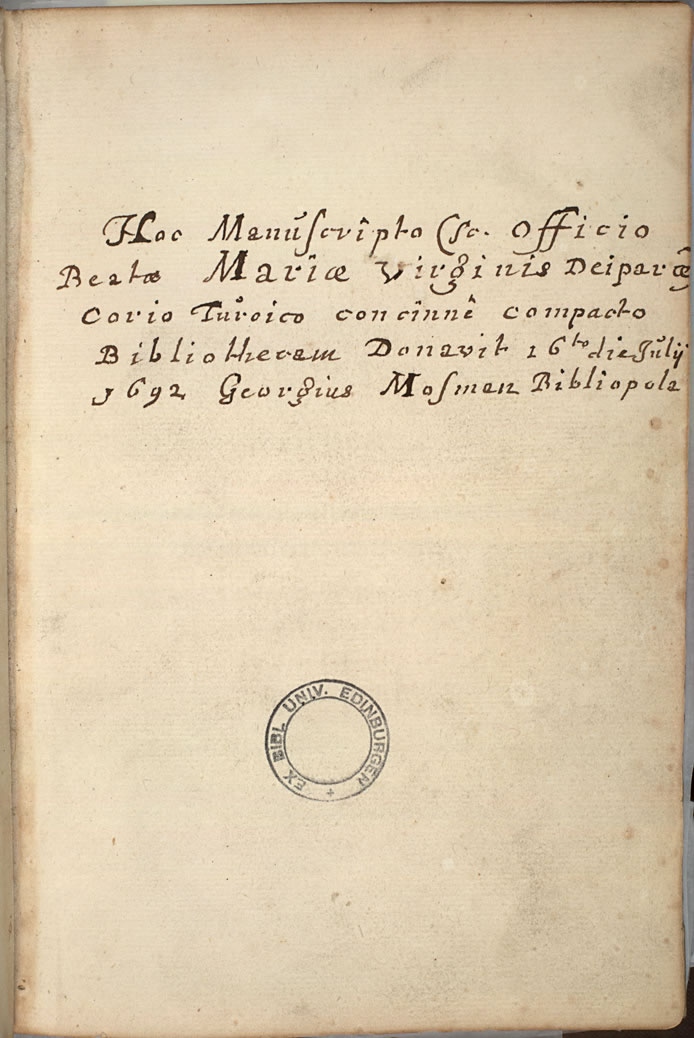 Hoc Manuſcrîpto (sc. Officio
Beatæ Marîæ Virginis Deiparæ
Corio Turcico concînnê compacto
Bibliothecam Donavit 16to die Julij
1692 Georgius Moſman Bibliopola
EX BIBL. UNIV. EDINBURGEN +